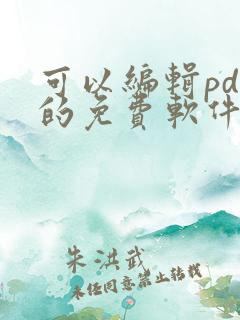 可以編輯pd
的免費軟件
朱洪武
未经同意禁止转载